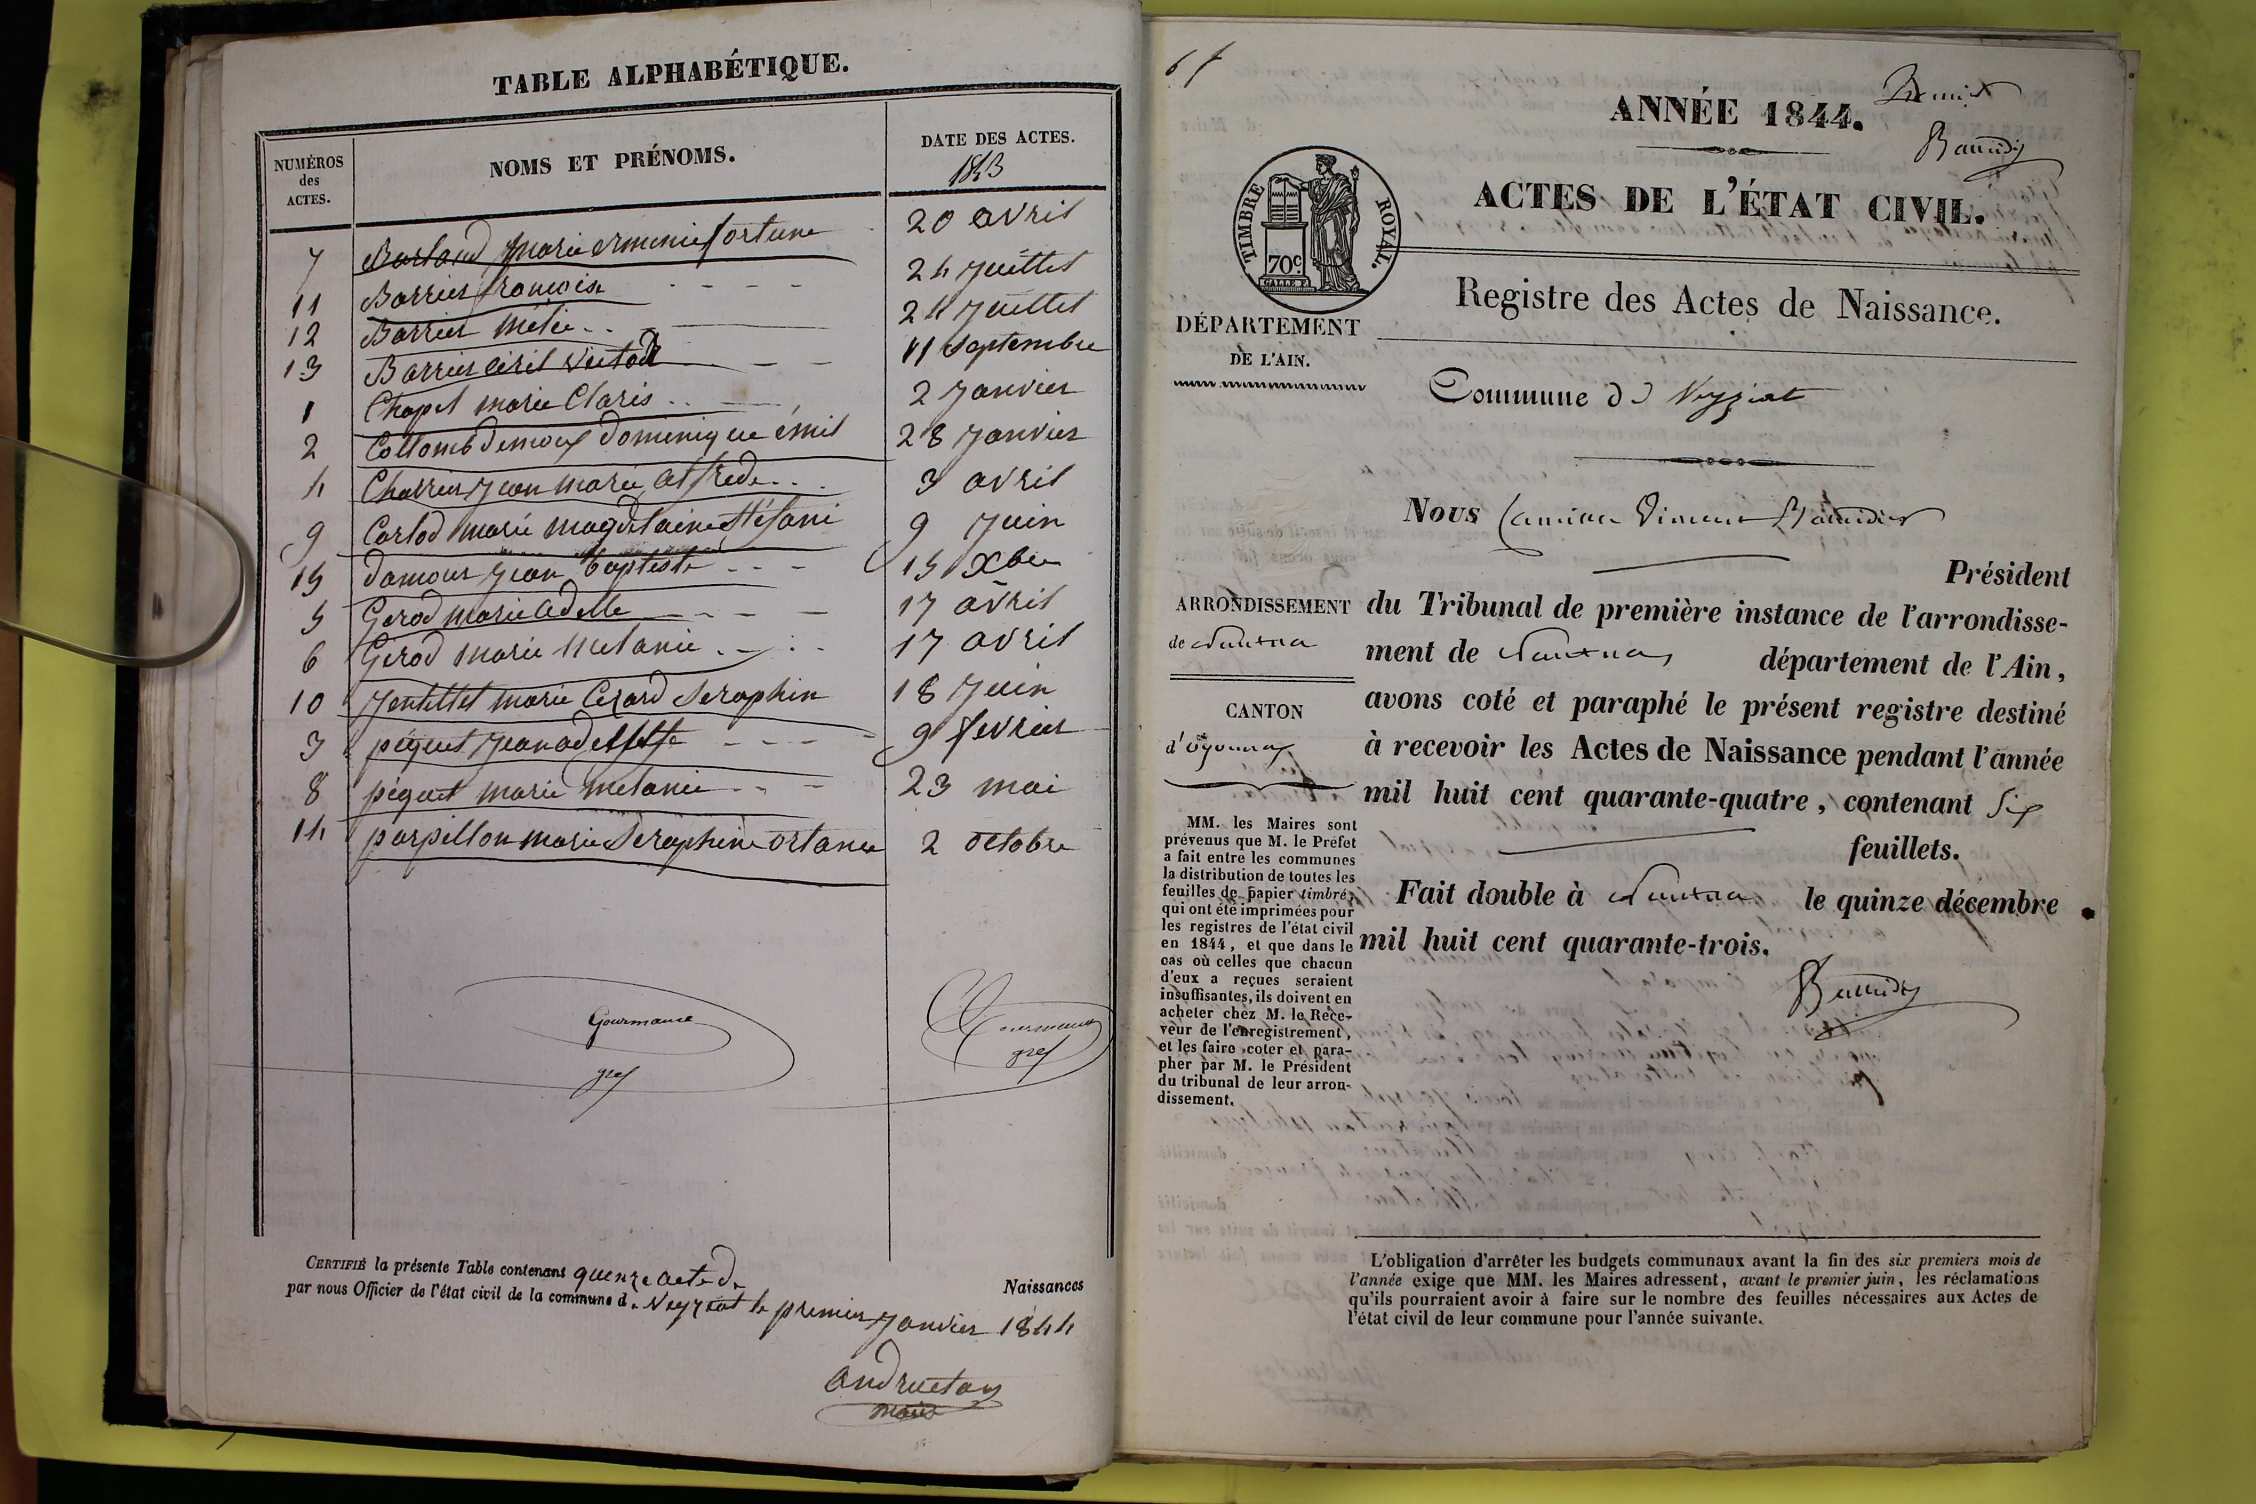 TABLE ALPHABÉTIQUE.
NUMÉROS
des
ACTES.
NOMS ET PRÉNOMS.
DATE DES ACTES.
1843
7 Barland marie ermenie fortune 20 avril
11 Barrier francoise 24 juillet
12 Barrier mélie 24 juillet
13 Barrier ciril victor 11 septembre
1 Chapel marie Claris 2 janvier
2 Collomb demoux dominique émil 28 janvier
4 Charrier jean marie alfrede 3 avril
9 Carlod marie magdelaine stéfani 9 juin
15 damour jean baptiste 15 Xbre
5 Gerod marie adelle 17 avril
6 Gerod marie melanie 17 avril
10 jentillet marie Cezard Seraphin 18 juin
3 péquet jean adelffe 9 fevrier
8 péquet marie melanie 23 mai
14 parpillon marie Seraphine ortance 2 octobre
Gourmand
gref
Gourmand
gref
CERTIFIÉ la présente Table contenant quinze acte de Naissances
par nous Officier de l'état civil de la commune d. Veyziat le premier janvier 1844
andruetan
maire
ANNÉE 1844.
Baudin
ACTES DE L'ÉTAT CIVIL.
TIMBRE ROYAL.
70c
Registre des Actes de Naissance.
DÉPARTEMENT
DE L'AIN.
Commune de Veyziat
Nous
Président
du Tribunal de première instance de l'arrondisse-
ment de Nantua département de l'Ain,
avons coté et paraphé le présent registre destiné
à recevoir les Actes de Naissance pendant l'année
mil huit cent quarante-quatre, contenant Six
feuillets.
Fait double à Nantua le quinze décembre
mil huit cent quarante-trois.
ARRONDISSEMENT
de Nantua
CANTON
d'oyonnax
MM. les Maires sont
prévenus que M. le Préfet
a fait entre les communes
la distribution de toutes les
feuilles de papier timbré,
qui ont été imprimées pour
les registres de l'état civil
en 1844, et que dans le
cas où celles que chacun
d'eux a reçues seraient
insuffisantes, ils doivent en
acheter chez M. le Rece-
veur de l'enregistrement,
et les faire coter et para-
pher par M. le Président
du tribunal de leur arron-
dissement.
L'obligation d'arrêter les budgets communaux avant la fin des six premiers mois de
l'année exige que MM. les Maires adressent, avant le premier juin, les réclamations
qu'ils pourraient avoir à faire sur le nombre des feuilles nécessaires aux Actes de
l'état civil de leur commune pour l'année suivante.